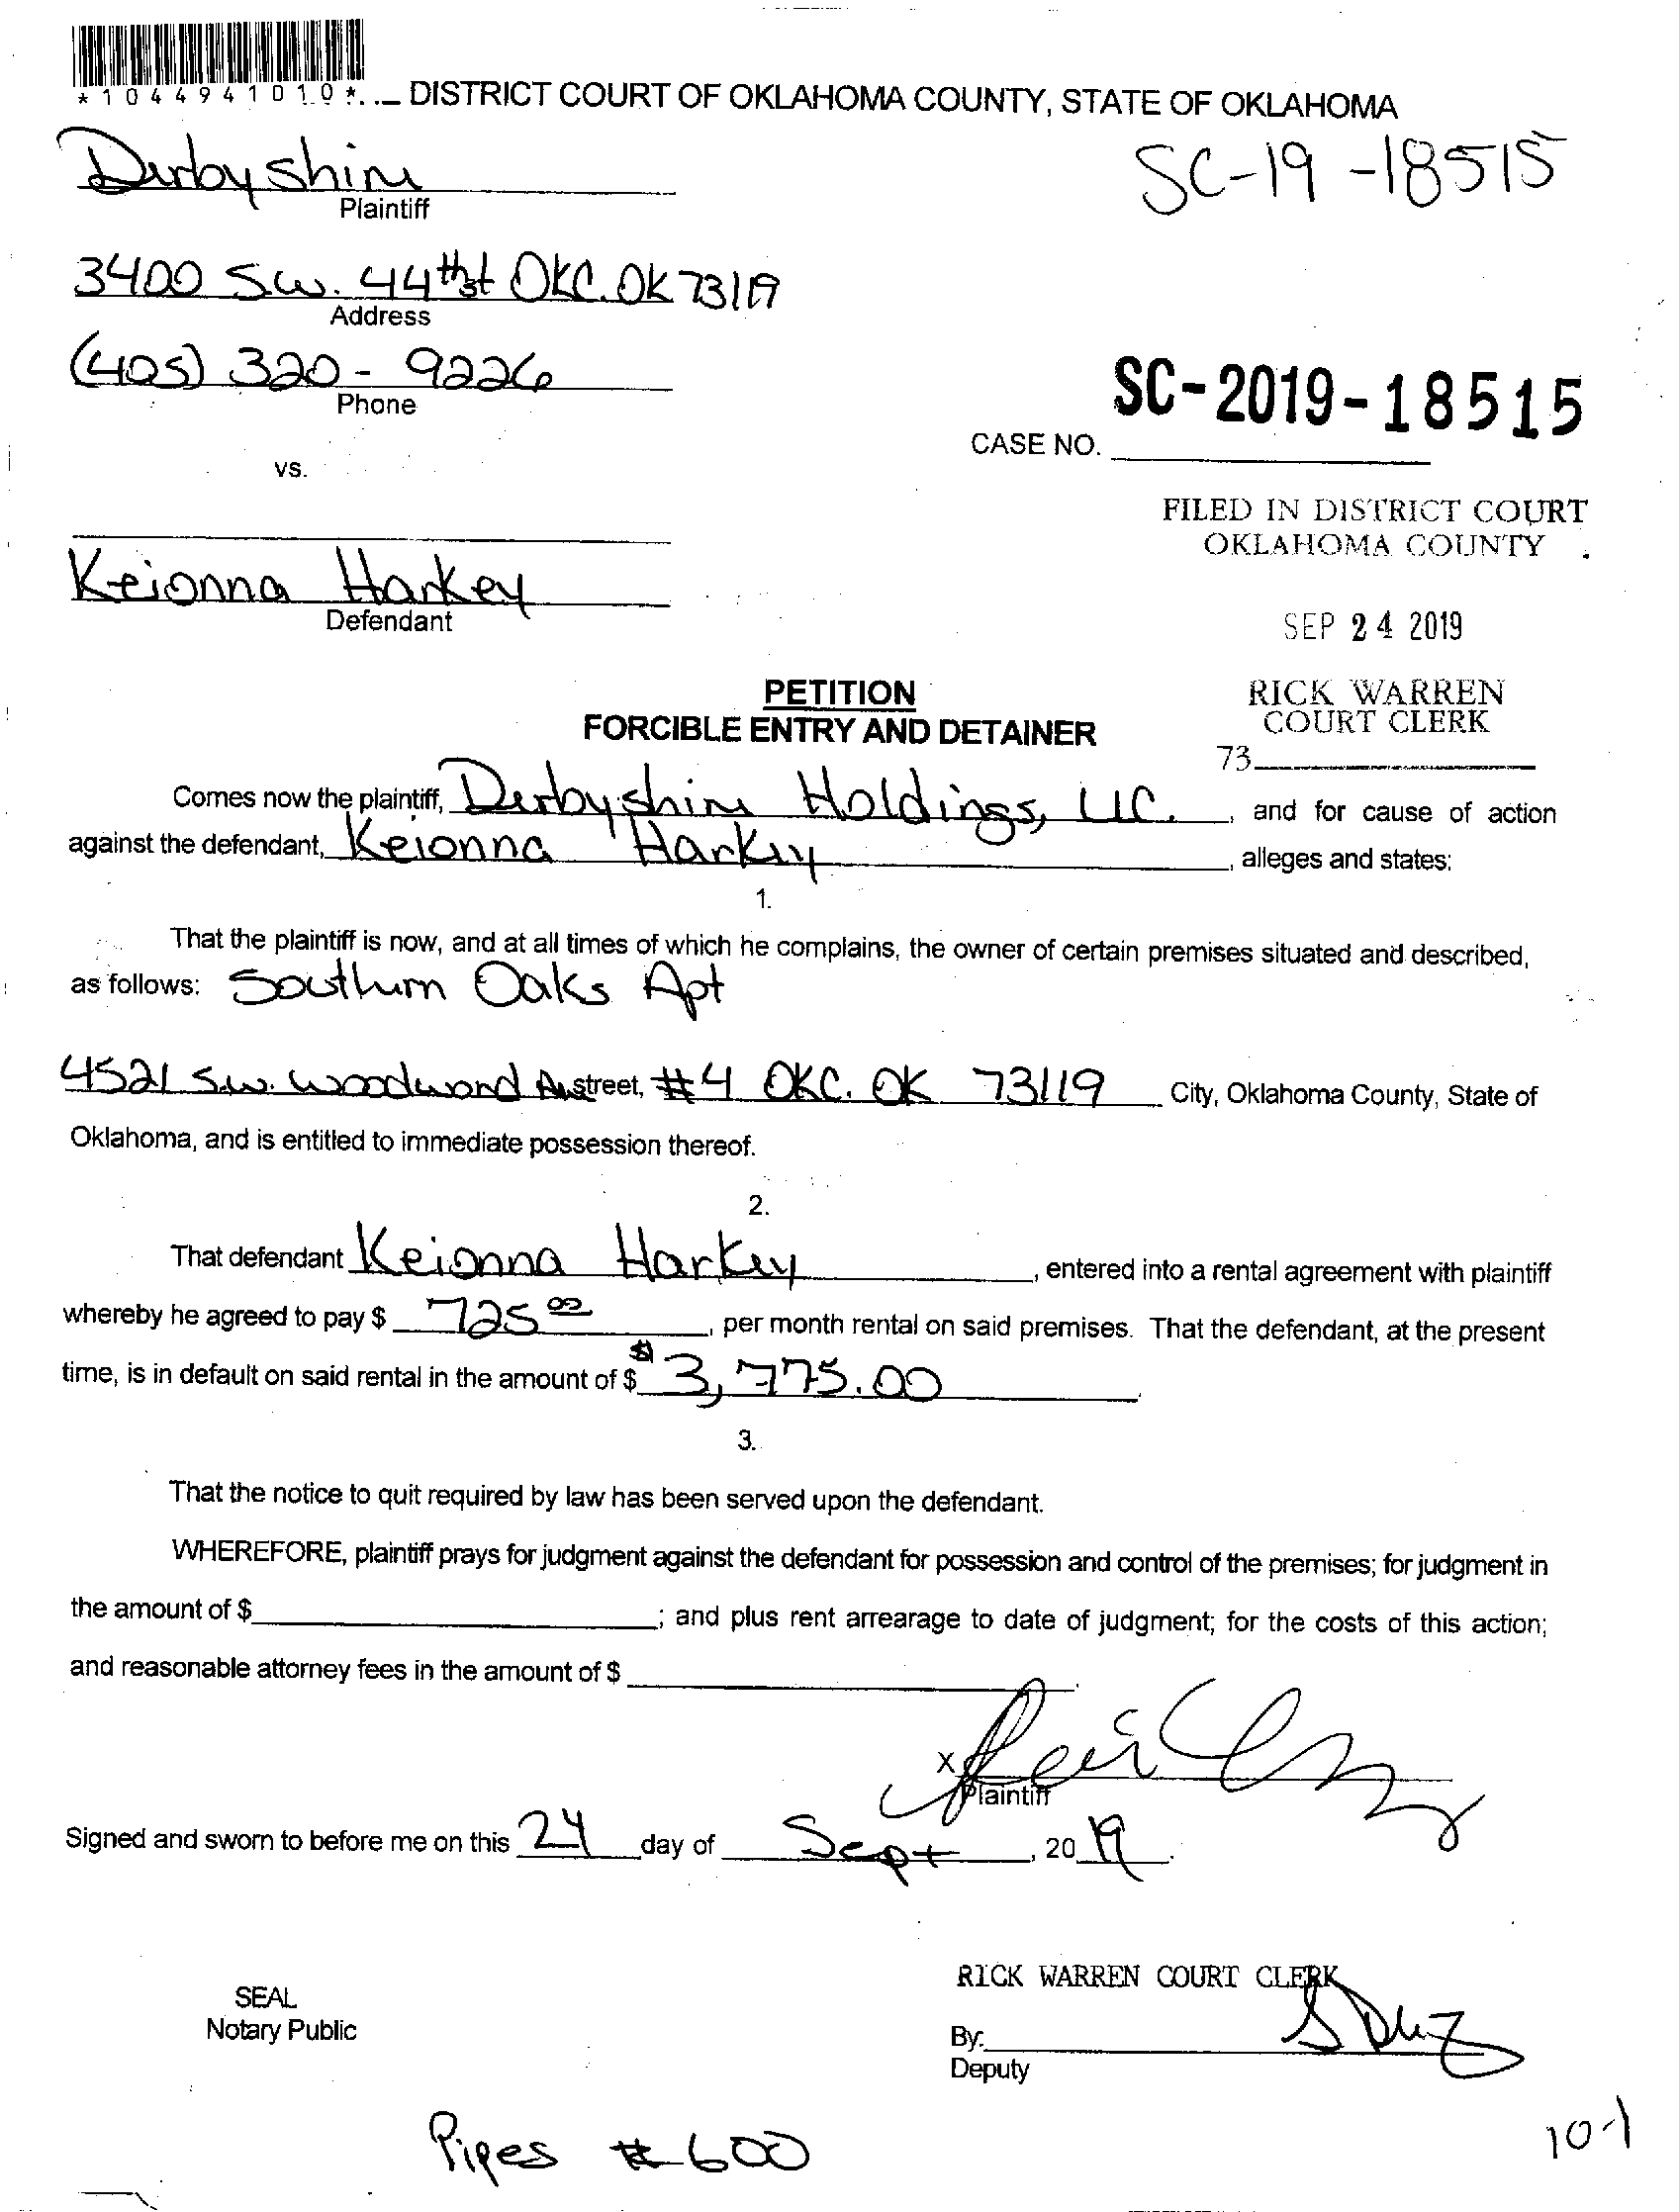 *1044941010*
DISTRICT COURT OF OKLAHOMA COUNTY, STATE OF OKLAHOMA
Derbyshire
Plaintiff
SC-19-18515
3400 S.W. 44th st OKC. OK 73119
Address
(405) 320-9226
Phone
SC-2019-18515
CASE NO.
vs.
FILED IN DISTRICT COURT
OKLAHOMA COUNTY
Keionna Harkey
Defendant
SEP 24 2019
PETITION
FORCIBLE ENTRY AND DETAINER
RICK WARREN
COURT CLERK
73
Comes now the plaintiff, Derbyshire Holdings, LLC. , and for cause of action
against the defendant, Keionna Harkey , alleges and states:
1.
That the plaintiff is now, and at all times of which he complains, the owner of certain premises situated and described,
as follows: Southern Oaks Apt
4521 S.W. Woodward Av street, #4 OKC. OK 73119 City, Oklahoma County, State of
Oklahoma, and is entitled to immediate possession thereof.
2.
That defendant Keionna Harkey , entered into a rental agreement with plaintiff
whereby he agreed to pay $ 725 00 , per month rental on said premises. That the defendant, at the present
time, is in default on said rental in the amount of $ $3,775.00 .
3.
That the notice to quit required by law has been served upon the defendant.
WHEREFORE, plaintiff prays for judgment against the defendant for possession and control of the premises; for judgment in
the amount of $ ; and plus rent arrearage to date of judgment; for the costs of this action;
and reasonable attorney fees in the amount of $ .
X
Plaintiff
Signed and sworn to before me on this 24 day of Sept , 20 19 .
RICK WARREN COURT CLERK
SEAL
Notary Public
By:
Deputy
Pipes # 600
10-1